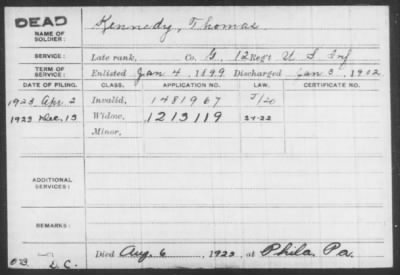 DEAD
NAME OF SOLDIER: Kennedy, Thomas
SERVICE: Late rank, Co. G, 12 Reg't U S Inf
TERM OF SERVICE: Enlisted Jan 4, 1899 Discharged Jan 3, 1902
DATE OF FILING. CLASS. APPLICATION NO. LAW. CERTIFICATE NO.
1923 Apr. 2 Invalid, 1481967 J/20
1923 Dec. 13 Widow, 1213119
Minor,
ADDITIONAL SERVICES:
REMARKS:
Died Aug. 6, 1923, at Phila. Pa.
D.C.